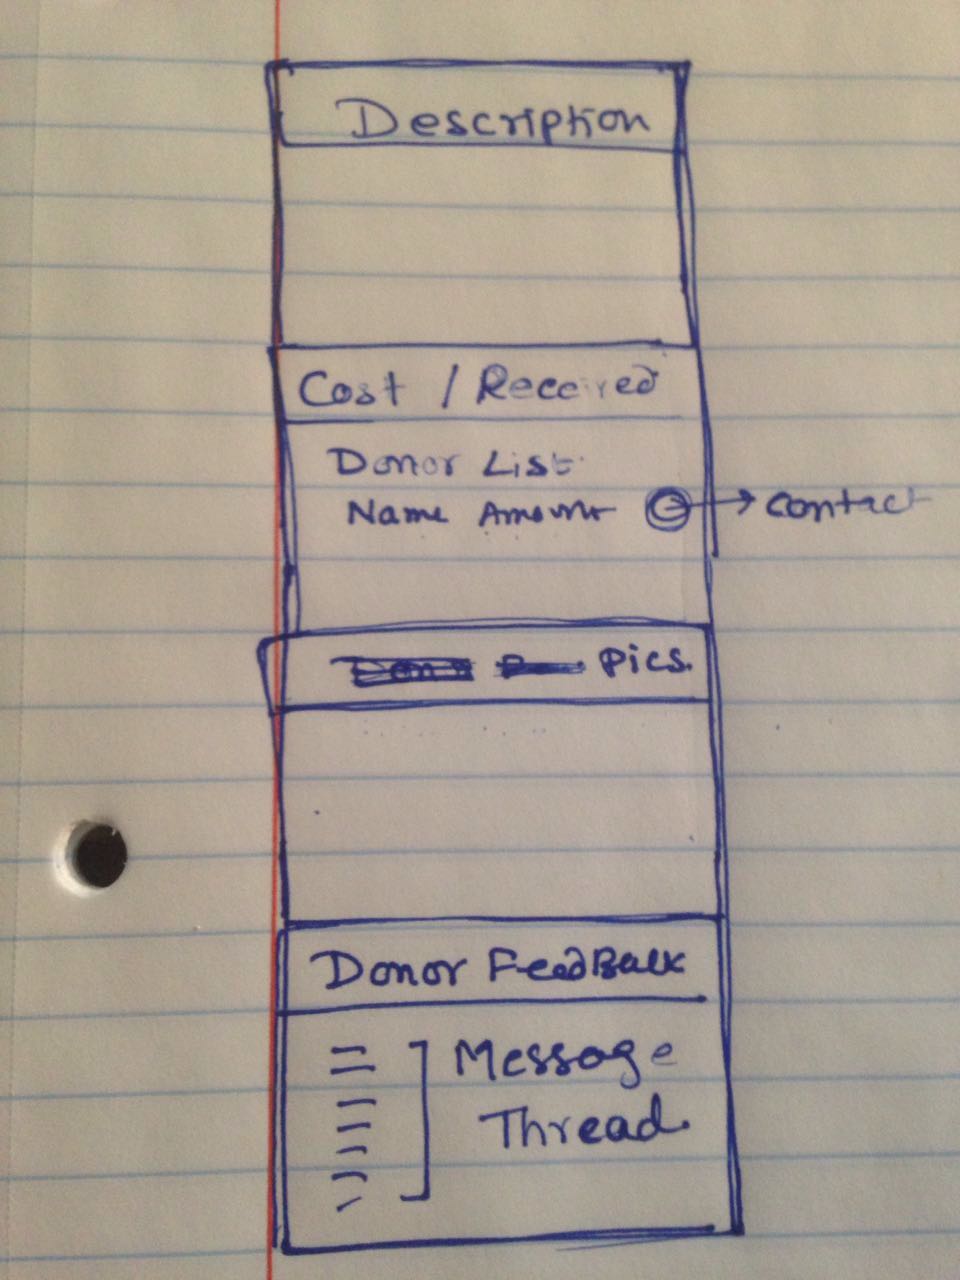 Description
Cost / Received
Donor List
Name Amount C → contact
Pics.
Donor FeedBack
Message
Thread.